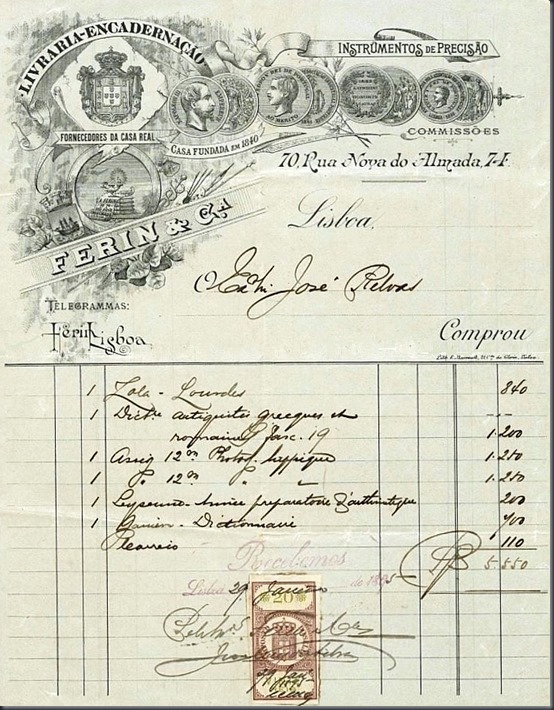 LIVRARIA-ENCADERNAÇÃO
INSTRUMENTOS DE PRECISÃO
FORNECEDORES DA CASA REAL
CASA FUNDADA EM 1840
COMMISSÕES
70, Rua Nova do Almada, 74
FERIN & Cᴬ
Lisboa
José Relvas
TELEGRAMMAS:
Ferin Lisboa
Comprou
1 Zola - Lourdes 840
1 Dictre antiquités grecques et ---
romaines fasc. 19 1.200
1 Assig 12 m Photog. hippique 1.250
1 " 12 m " " 1.250
1 Leysenne - Année préparatoire d'arithmétique 200
1 - Dictionnaire 700
110
5.550
Recebemos
Lisboa, 29 Janeiro de 1895
20